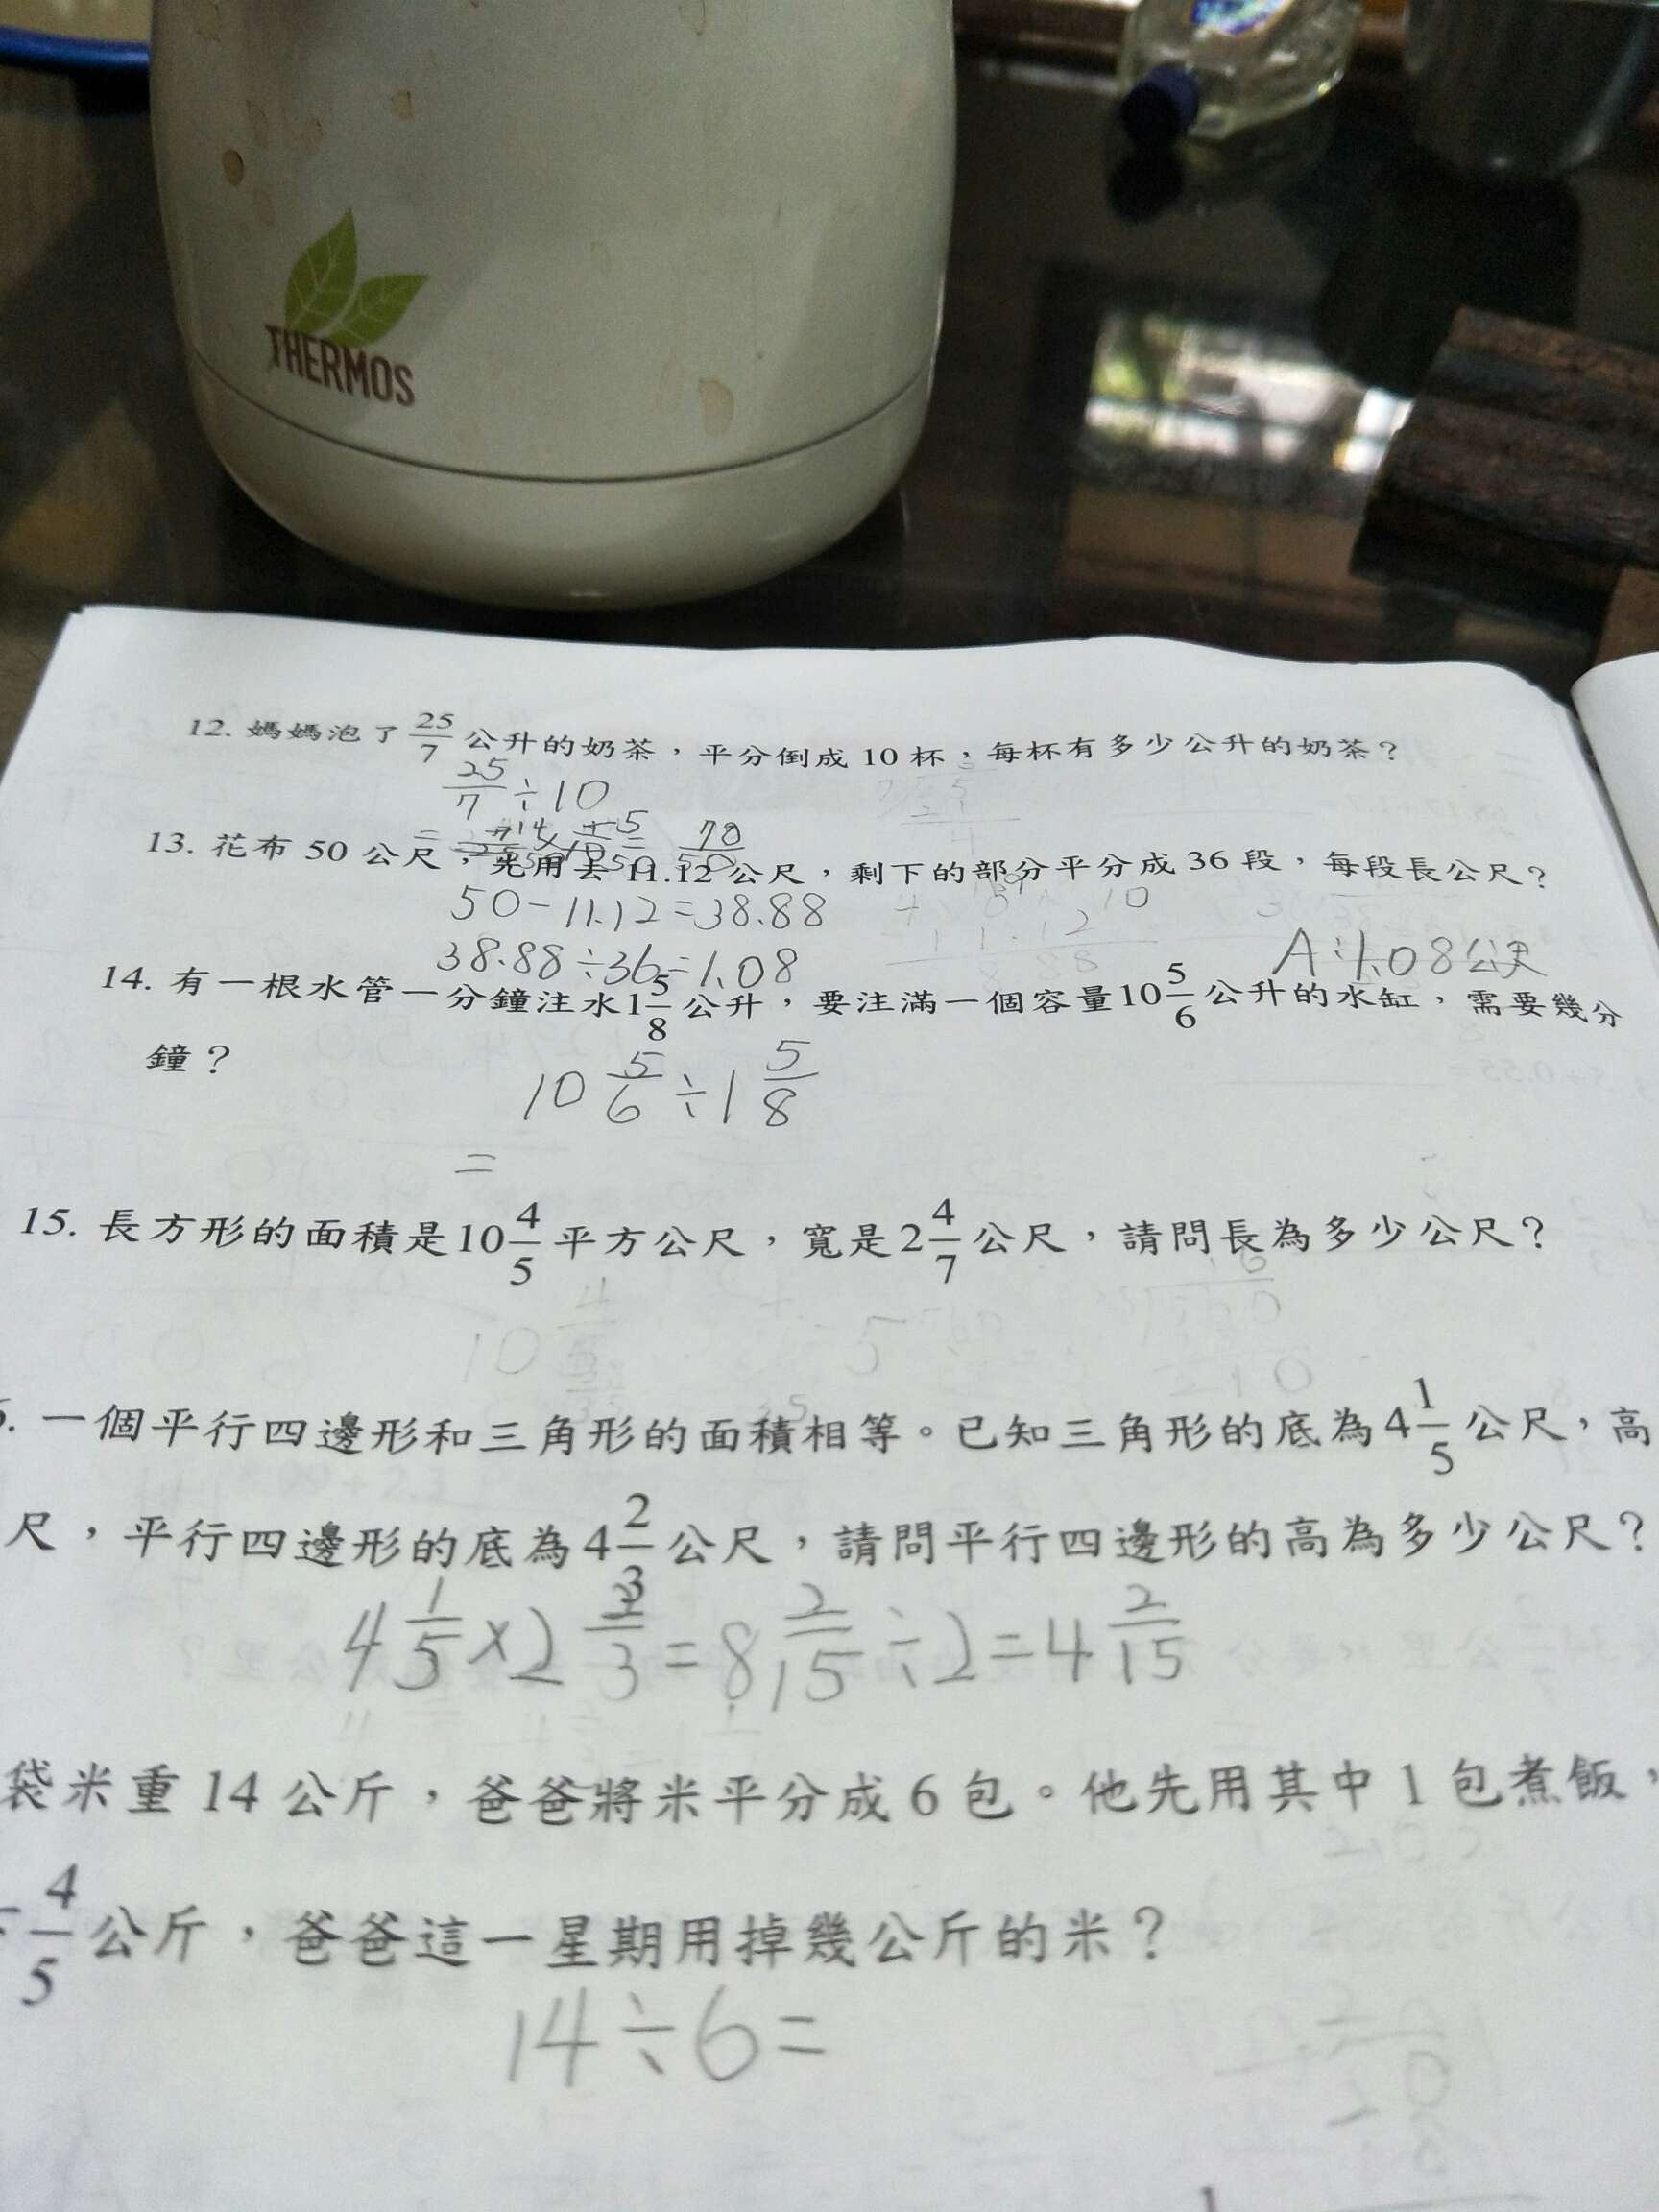 THERMOS
12. 媽媽泡了 25/7 公升的奶茶，平分倒成 10 杯，每杯有多少公升的奶茶？
25/7 ÷ 10
13. 花布 50 公尺，先用去 11.12 公尺，剩下的部分平分成 36 段，每段長公尺？
50-11.12=38.88
38.88÷36=1.08
A:1.08公尺
14. 有一根水管一分鐘注水1 5/8 公升，要注滿一個容量10 5/6 公升的水缸，需要幾分
鐘？
10 5/6 ÷ 1 5/8
=
15. 長方形的面積是10 4/5 平方公尺，寬是2 4/7 公尺，請問長為多少公尺？
一個平行四邊形和三角形的面積相等。已知三角形的底為4 1/5 公尺，高
尺，平行四邊形的底為4 2/3 公尺，請問平行四邊形的高為多少公尺？
4 1/5 × 2 2/3 = 8 2/15 ÷ 2 = 4 2/15
袋米重 14 公斤，爸爸將米平分成 6 包。他先用其中 1 包煮飯，
4/5 公斤，爸爸這一星期用掉幾公斤的米？
14÷6=